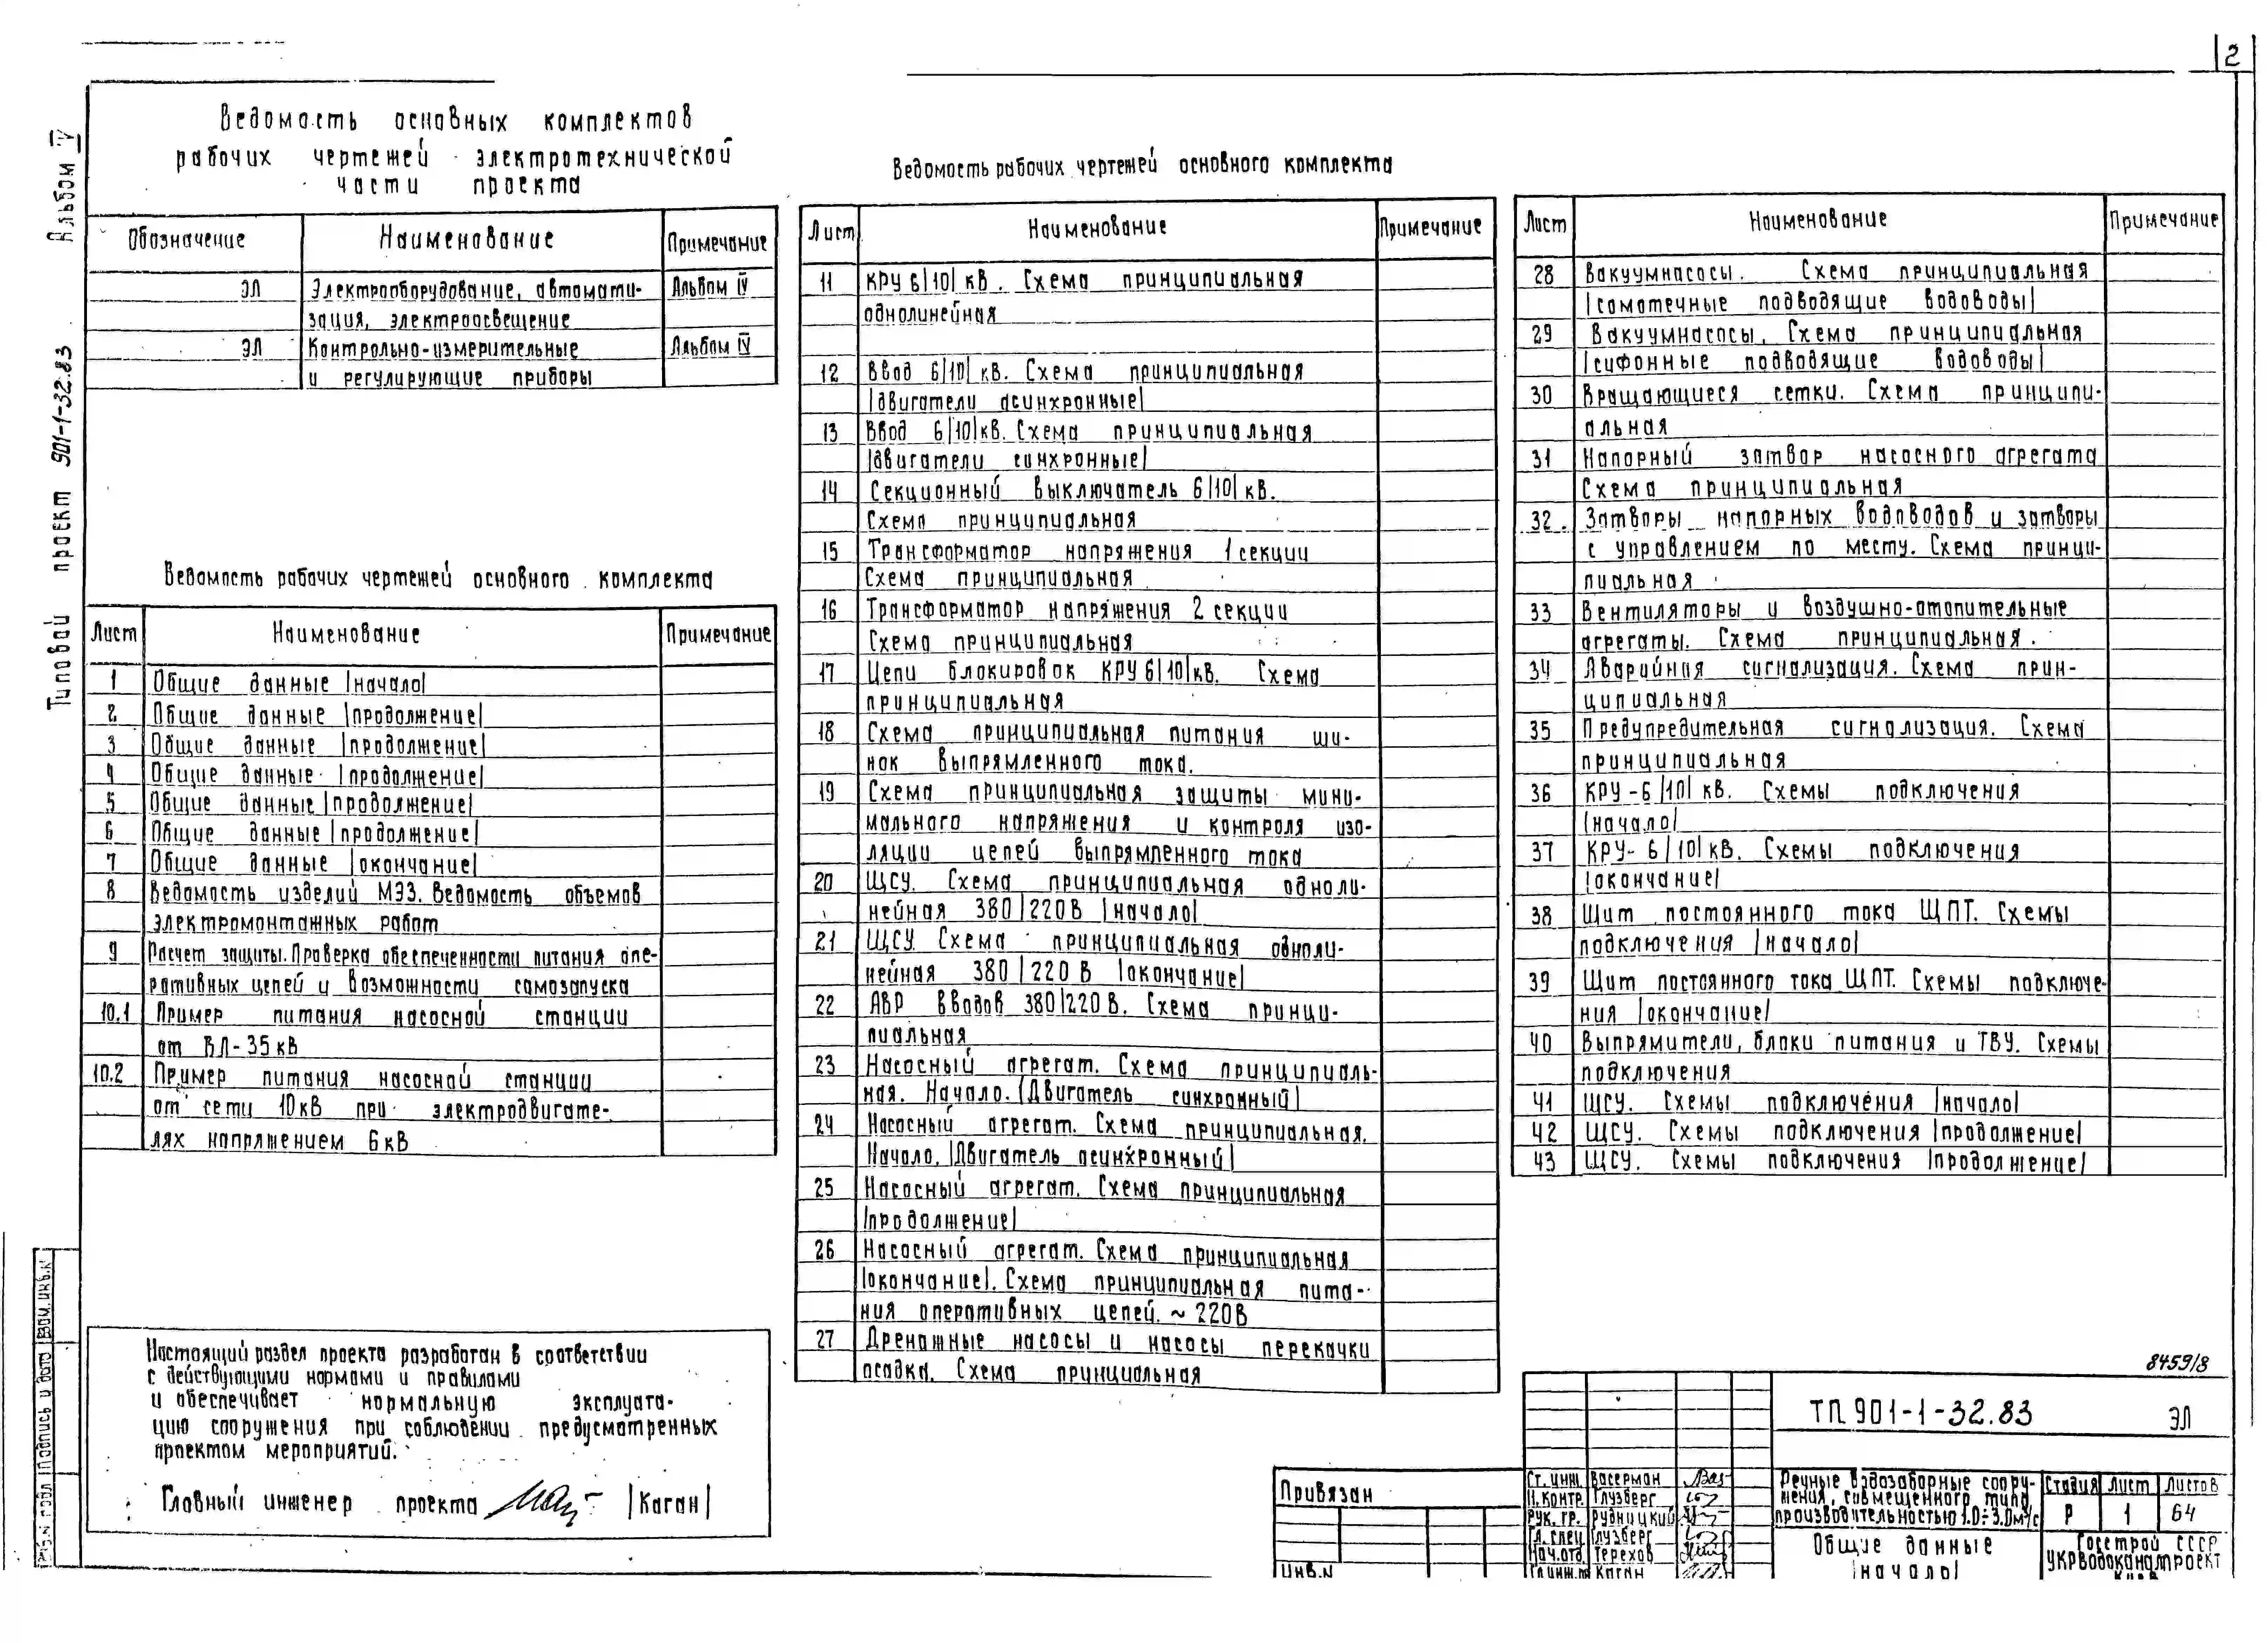 2
Альбом IV
Типовой проект 901-1-32.83
Ведомость основных комплектов
рабочих чертежей электротехнической
части проекта
Обозначение Наименование Примечание
ЭЛ Электрооборудование, автомати- Альбом IV
зация, электроосвещение
ЭЛ Контрольно-измерительные Альбом IV
и регулирующие приборы
Ведомость рабочих чертежей основного комплекта
Лист Наименование Примечание
1 Общие данные |начало|
2 Общие данные |продолжение|
3 Общие данные |продолжение|
4 Общие данные |продолжение|
5 Общие данные |продолжение|
6 Общие данные |продолжение|
7 Общие данные |окончание|
8 Ведомость изделий МЭЗ. Ведомость объемов
электромонтажных работ
9 Расчет защиты. Проверка обеспеченности питания опе-
ративных цепей и возможности самозапуска
10.1 Пример питания насосной станции
от ВЛ-35кВ
10.2 Пример питания насосной станции
от сети 10кВ при электродвигате-
лях напряжением 6кВ
Настоящий раздел проекта разработан в соответствии
с действующими нормами и правилами
и обеспечивает нормальную эксплуата-
цию сооружения при соблюдении предусмотренных
проектом мероприятий.
Главный инженер проекта |Каган|
Взам. инв. №
Подпись и дата
Ведомость рабочих чертежей основного комплекта
Лист Наименование Примечание
11 КРУ 6|10| кВ. Схема принципиальная
однолинейная
12 Ввод 6|10| кВ. Схема принципиальная
|двигатели асинхронные|
13 Ввод 6|10|кВ. Схема принципиальная
|двигатели синхронные|
14 Секционный выключатель 6|10| кВ.
Схема принципиальная
15 Трансформатор напряжения 1 секции
Схема принципиальная
16 Трансформатор напряжения 2 секции
Схема принципиальная
17 Цепи блокировок КРУ 6|10|кВ. Схема
принципиальная
18 Схема принципиальная питания ши-
нок выпрямленного тока.
19 Схема принципиальная защиты мини-
мального напряжения и контроля изо-
ляции цепей выпрямленного тока
20 ЩСУ. Схема принципиальная одноли-
нейная 380|220В |начало|
21 ЩСУ. Схема принципиальная одноли-
нейная 380|220В |окончание|
22 АВР вводов 380|220В. Схема принци-
пиальная
23 Насосный агрегат. Схема принципиаль-
ная. Начало. |Двигатель синхронный|
24 Насосный агрегат. Схема принципиальная.
Начало. |Двигатель асинхронный|
25 Насосный агрегат. Схема принципиальная
|продолжение|
26 Насосный агрегат. Схема принципиальная
|окончание|. Схема принципиальная пита-
ния оперативных цепей. ~ 220В
27 Дренажные насосы и насосы перекачки
осадка. Схема принципиальная
Лист Наименование Примечание
28 Вакуумнасосы. Схема принципиальная
|самотечные подводящие водоводы|
29 Вакуумнасосы. Схема принципиальная
|сифонные подводящие водоводы|
30 Вращающиеся сетки. Схема принципи-
альная
31 Напорный затвор насосного агрегата
Схема принципиальная
32. Затворы напорных водоводов и затворы
с управлением по месту. Схема принци-
пиальная
33 Вентиляторы и воздушно-отопительные
агрегаты. Схема принципиальная.
34 Аварийная сигнализация. Схема прин-
ципиальная
35 Предупредительная сигнализация. Схема
принципиальная
36 КРУ-6|10| кВ. Схемы подключения
|начало|
37 КРУ-6|10|кВ. Схемы подключения
|окончание|
38 Щит постоянного тока ЩПТ. Схемы
подключения |начало|
39 Щит постоянного тока ЩПТ. Схемы подключе-
ния |окончание|
40 Выпрямители, блоки питания и ТВУ. Схемы
подключения
41 ЩСУ. Схемы подключения |начало|
42 ЩСУ. Схемы подключения |продолжение|
43 ЩСУ. Схемы подключения |продолжение|
8459/8
Привязан
Инв.№
ТП 901-1-32.83 ЭЛ
Ст. инж. Васерман
Н.контр. Глузберг
Рук. гр. Рудницкий
Гл. спец Глузберг
Нач.отд Терехов
Гл.инж.пр Каган
Речные водозаборные соору-
жения, совмещенного типа
производительностью 1.0÷3.0м³/с
Стадия Лист Листов
Р 1 64
Общие данные
|начало|
Госстрой СССР
УКРВОДОКАНАЛПРОЕКТ